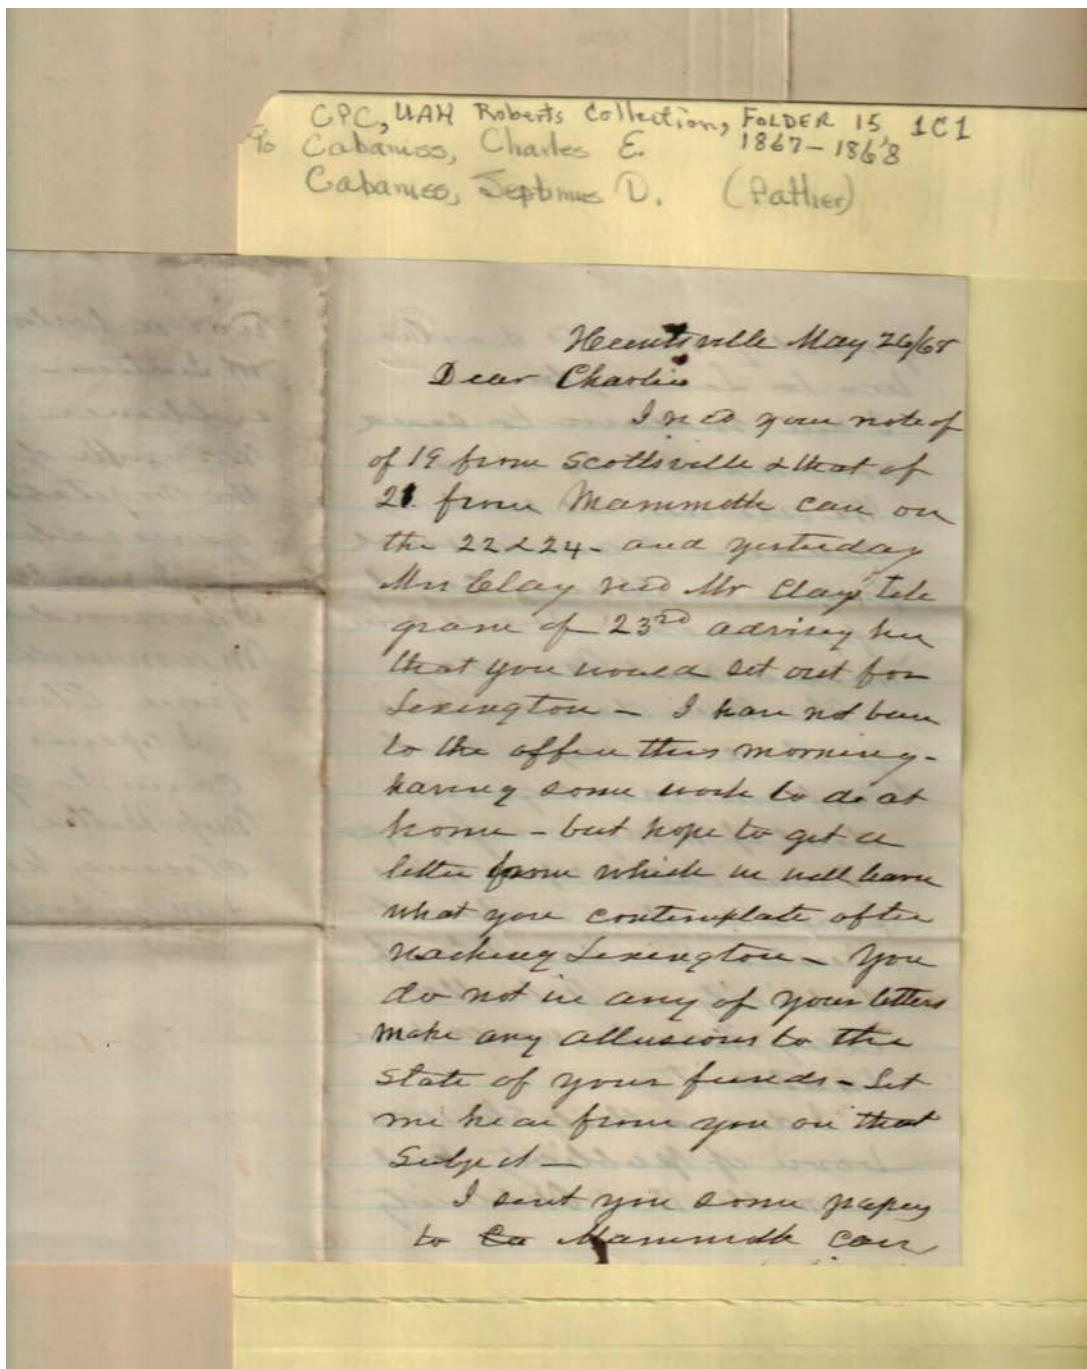 CPC, UAH Roberts Collection, FOLDER 15, 1C1
To Cabaniss, Charles E. 1867-1868
Cabaniss, Septimus D. (Father)
Huntsville May 26/68
Dear Charlie
I recd your note of
of 19 from Scottsville & that of
21 from Mammoth Cave on
the 22 & 24 - and yesterday
Mrs Clay recd Mr Clays tele
gram of 23rd advising her
that you would set out for
Lexington - I have not been
to the office this morning -
having some work to do at
home - but hope to get a
letter from which we will learn
what you contemplate after
reaching Lexington - You
do not in any of your letters
make any allusions to the
state of your funds - Let
me hear from you on that
Subject -
I sent you some papers
to Ca Mammoth Cave